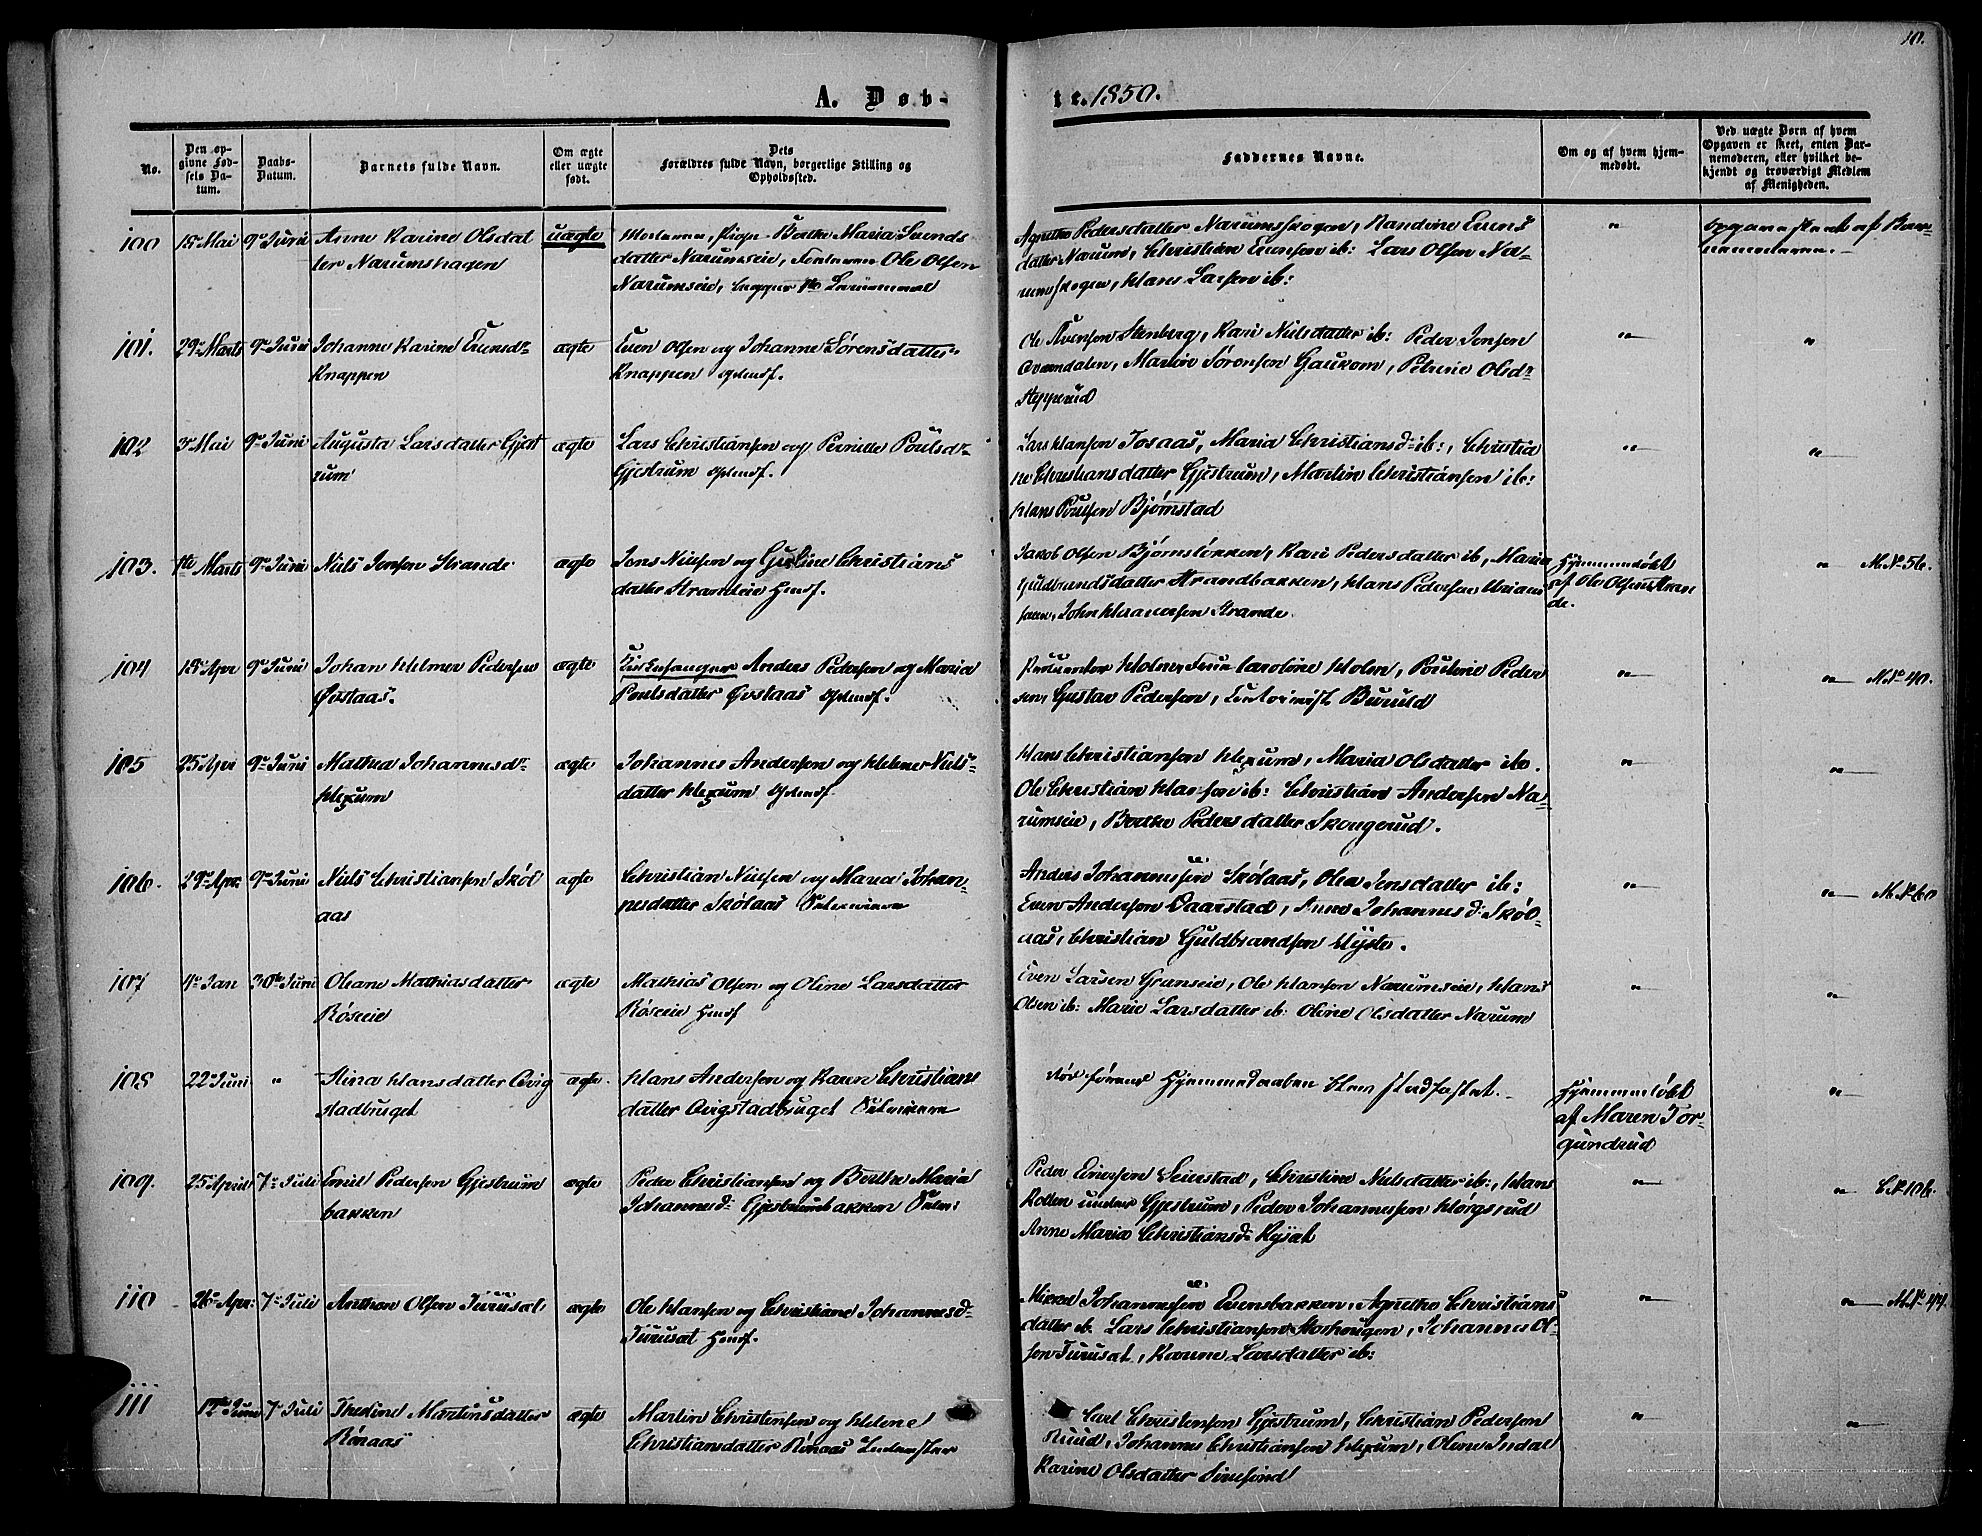 10.
A. Døb-
te. 1850.
No.
Den op-
givne Fød-
sels Da-
tum.
Daabs-
Datum.
Barnets fulde Navn.
Om ægte
eller uægte
født.
Dets
Forældres fulde Navn, borgerlige Stilling og
Opholdssted.
Faddernes Navne.
Om og af hvem hjem-
medøbt.
Ved uægte Børn af hvem
Opgaven er skeet, enten Bar-
nemoderen, eller hvilket be-
kjendt og troværdigt Medlem
af Menigheden.
100 15 Mai 9de Juni Anne Karine Olsdat
ter Narumshagen
uægte
Pige Berthe Maria Svends
datter Narumseie, Ole Olsen
Narumseie,
Agnethe Pedersdatter Narumsskogen, Randine Evens
datter Narum, Christian Evensen ib: Lars Olsen Na-
rumsskogen, Hans Larsen ib:
"
Opgave af Bar-
nemoderen.
101. 29de Marts 9de Juni Johanne Karine Evensdr
Knappen
ægte
Even Olsen og Johanne Sørensdatter
Knappen Oplandsf.
Ole Svensen Stenberg, Kari Nielsdatter ib: Peder Jensen
Martin Sørensen Gaukom, Petrine Olsdr
Hepperud
"
"
102 3de Mai 9de Juni Augusta Larsdatter Gjest
rum
ægte
Lars Christiansen og Pernille Poulsdr
Gjestrum Oplandsf.
Lars Hansen Josaas, Maria Christiansdr ib:, Christia
ne Christiansdatter Gjestrum, Martin Christiansen ib:
Hans Poulsen Bjørnstad
"
"
103. 1ste Marts 9de Juni Niels Jensen Strande
ægte
Jens Nielsen og Guline Christians
datter Strandeie Huusf.
Jakob Olsen Bjørnsløkken, Kari Pedersdatter ib, Maria
Guldbrandsdatter Strandbakken, Hans Pedersen
Strande.
Hjemmedøbt
af Ole Olsen Stran
de.
"
M. No 56.
104 18de Apr 9de Juni Johan Helmer Pedersen
Qvstaas.
ægte
Kirkesanger Anders Pedersen og Maria
Poulsdatter Oplandsf.
Holm, Frue Caroline Holm, Pouline Peder
sen, Gustav Pedersen,
"
"
M. No 40.
105 25 Apr 9de Juni Mathea Johannesdr
Hexum
ægte
Johannes Andersen og Helene Niels-
datter Hexum Oplandsf.
Hans Christiansen Hexum, Maria Olsdatter ib.
Ole Christian Hansen ib: Christian Andersen Na-
rumseie, Berthe Pedersdatter Skongerud.
"
"
106. 29de Apr. 9de Juni Niels Christiansen Skøl
aas
ægte
Christian Nielsen og Maria Johan-
nesdatter Skølaas
Anders Johannessen Skølaas, Olea Jensdatter ib:
Even Andersen Daarstad, Anne Johannesd: Skøl-
aas, Christian Guldbrandsen
"
"
M. No 60
107 4de Jan 30te Juni Oleane Mathiasdatter
Røseie
ægte
Mathias Olsen og Oline Larsdatter
Røseie Huusf
Even Larsen Granseie, Ole Hansen Narumseie, Hans
Olsen ib: Marie Larsdatter ib: Oline Olsdatter Narum
"
"
108 22de Juni " Stina Hansdatter Qvig
stadbruget
ægte.
Hans Andersen og Karen Christians
datter Qvigstadbruget
Død førend Hjemmedaaben blev stadfæstet.
Hjemmedøbt
af Maren Tor-
gundrud
"
109. 25 April 7de Juli Emil Pedersen Gjestrum
bakken
ægte
Peder Christiansen og Berthe Maria
Johannesd: Gjestrumbakken
Peder Enersen Seierstad, Christine Nielsdatter ib:, Hans
under Gjestrum, Peder Johannessen
Anne Maria Christiansdr Rysat
"
"
110 26de Apr. 7de Juli Anthon Olsen Turusat.
ægte
Ole Hansen og Christiane Johannesd-
Turusat Huusf.
Mikkel Johannessen Evensbakken, Agnethe Christians
datter ib. Lars Christiansen Johannes Ol-
sen Turusat, Karine Larsdatter ib:
"
"
M. No 44.
111 12te Juni 7de Juli Thedine Martinsdatter
Rønaas
ægte
Martin Christensen og Helene
Christiansdatter Rønaas
Carl Christensen Gjestrum, Christian Pedersen
Ruud, Johannes Christiansen Hexum, Oline Indal
Karine Olsdatter
"
"